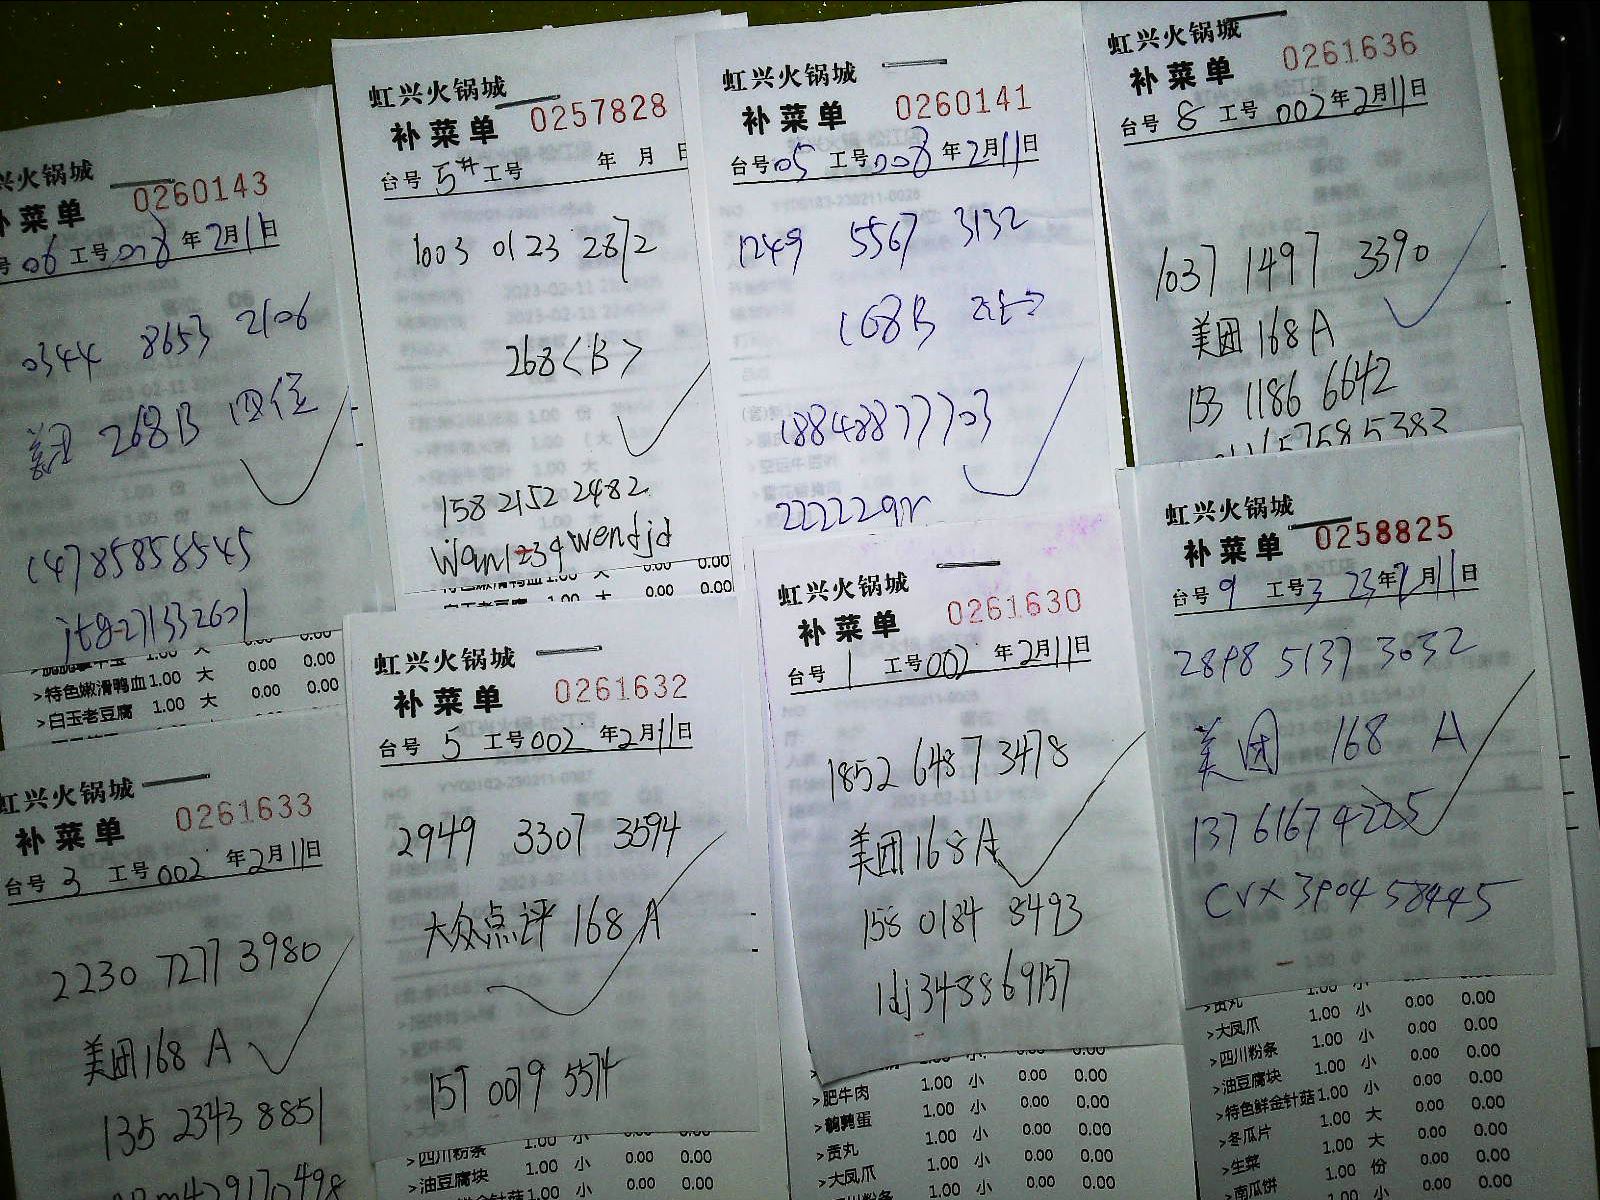 虹兴火锅城
补菜单 0257828
台号 5# 工号 年 月 日
1003 0123 2872
268<B>
158 2152 2482
Wan1234wendjd
白玉老豆腐 1.00 大 0.00 0.00
虹兴火锅城
补菜单 0260141
台号 05 工号 008 年 2月11日
1249 5567 3132
168B
18848877703
虹兴火锅城
补菜单 0261636
台号 8 工号 002 年 2月11日
1037 1497 3390
美团168A
153 1186 6642
兴火锅城
补菜单 0260143
号 06 工号 008 年 2月11日
0344 8653 2106
美团 268B 四位
14785858545
jt8-271332601
>特色嫩滑鸭血 1.00 大 0.00 0.00
>白玉老豆腐 1.00 大 0.00 0.00
虹兴火锅城
补菜单 0258825
台号 9 工号 3 23年2月11日
2898 5137 3032
美团 168 A
137 6167 4225
CVX3904 58445
>贡丸 1.00 小 0.00 0.00
>大凤爪 1.00 小 0.00 0.00
>四川粉条 1.00 小 0.00 0.00
>油豆腐块 1.00 小 0.00 0.00
>特色鲜金针菇 1.00 小 0.00 0.00
>冬瓜片 1.00 大 0.00 0.00
>生菜 1.00 大 0.00 0.00
>南瓜饼 1.00 份 0.00 0.00
虹兴火锅城
补菜单 0261630
台号 1 工号 002 年 2月11日
1852 6487 3478
美团168A
158 0184 8493
ldj348869157
>肥牛肉 1.00 小 0.00 0.00
>鹌鹑蛋 1.00 小 0.00 0.00
>贡丸 1.00 小 0.00 0.00
>大凤爪 1.00 小 0.00 0.00
虹兴火锅城
补菜单 0261632
台号 5 工号 002 年 2月11日
2949 3307 3594
大众点评 168 A
157 0079 5574
>四川粉条 1.00 小 0.00 0.00
>油豆腐块 1.00 小 0.00 0.00
虹兴火锅城
补菜单 0261633
台号 3 工号 002 年 2月11日
2230 7277 3980
美团168 A
135 2343 8851